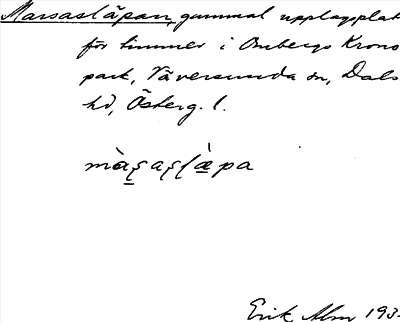 Marsasläpan, gammal upplagplat
för timmer i Ombergs Krono
park, Väversunda sn, Dals
hd, Österg. l.
màʂaʂlæ̀pa
Erik Alm 193